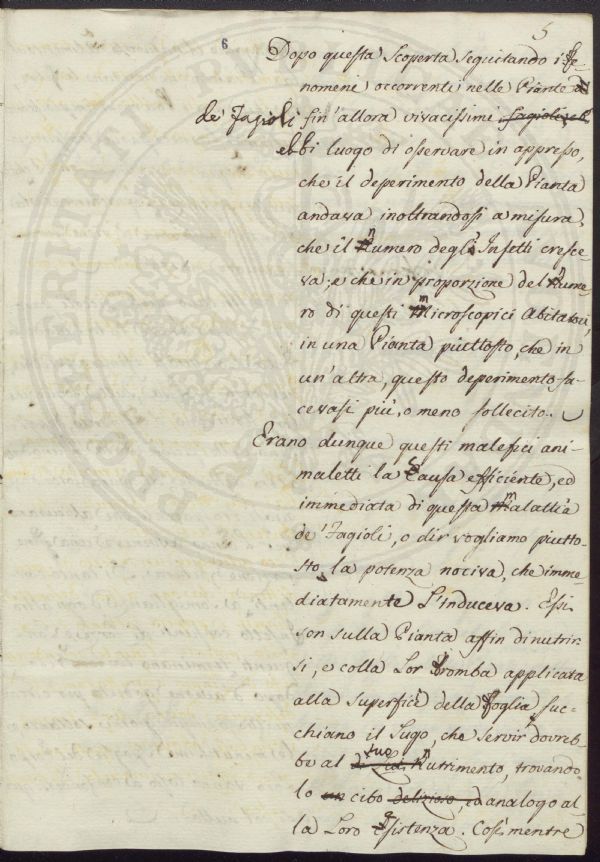 5
6
Dopo questa scoperta seguitando i fe-
nomeni occorrenti nelle Piante
de' Fagioli fin' allora vivacissimi
ebbi luogo di osservare in appresso,
che il deperimento della Pianta
andava inoltrandosi a misura,
che il numero degl' Insetti cresce-
va; e che in proporzione del nume-
ro di questi microscopici Abitatori,
in una Pianta piuttosto, che in
un'altra, questo deperimento fa-
cevasi più, o meno sollecito.
Erano dunque questi malefici ani-
maletti la causa efficiente, ed
immediata di questa malattia
de' Fagioli, o dir vogliamo piutto-
sto, la potenza nociva, che imme-
diatamente l'induceva. Essi
son sulla Pianta affin di nutrir-
si, e colla lor tromba applicata
alla superficie della foglia suc-
chiano il sugo, che servir dovreb-
be al suo nutrimento, trovando-
lo cibo analogo al-
la loro esistenza. Così mentre